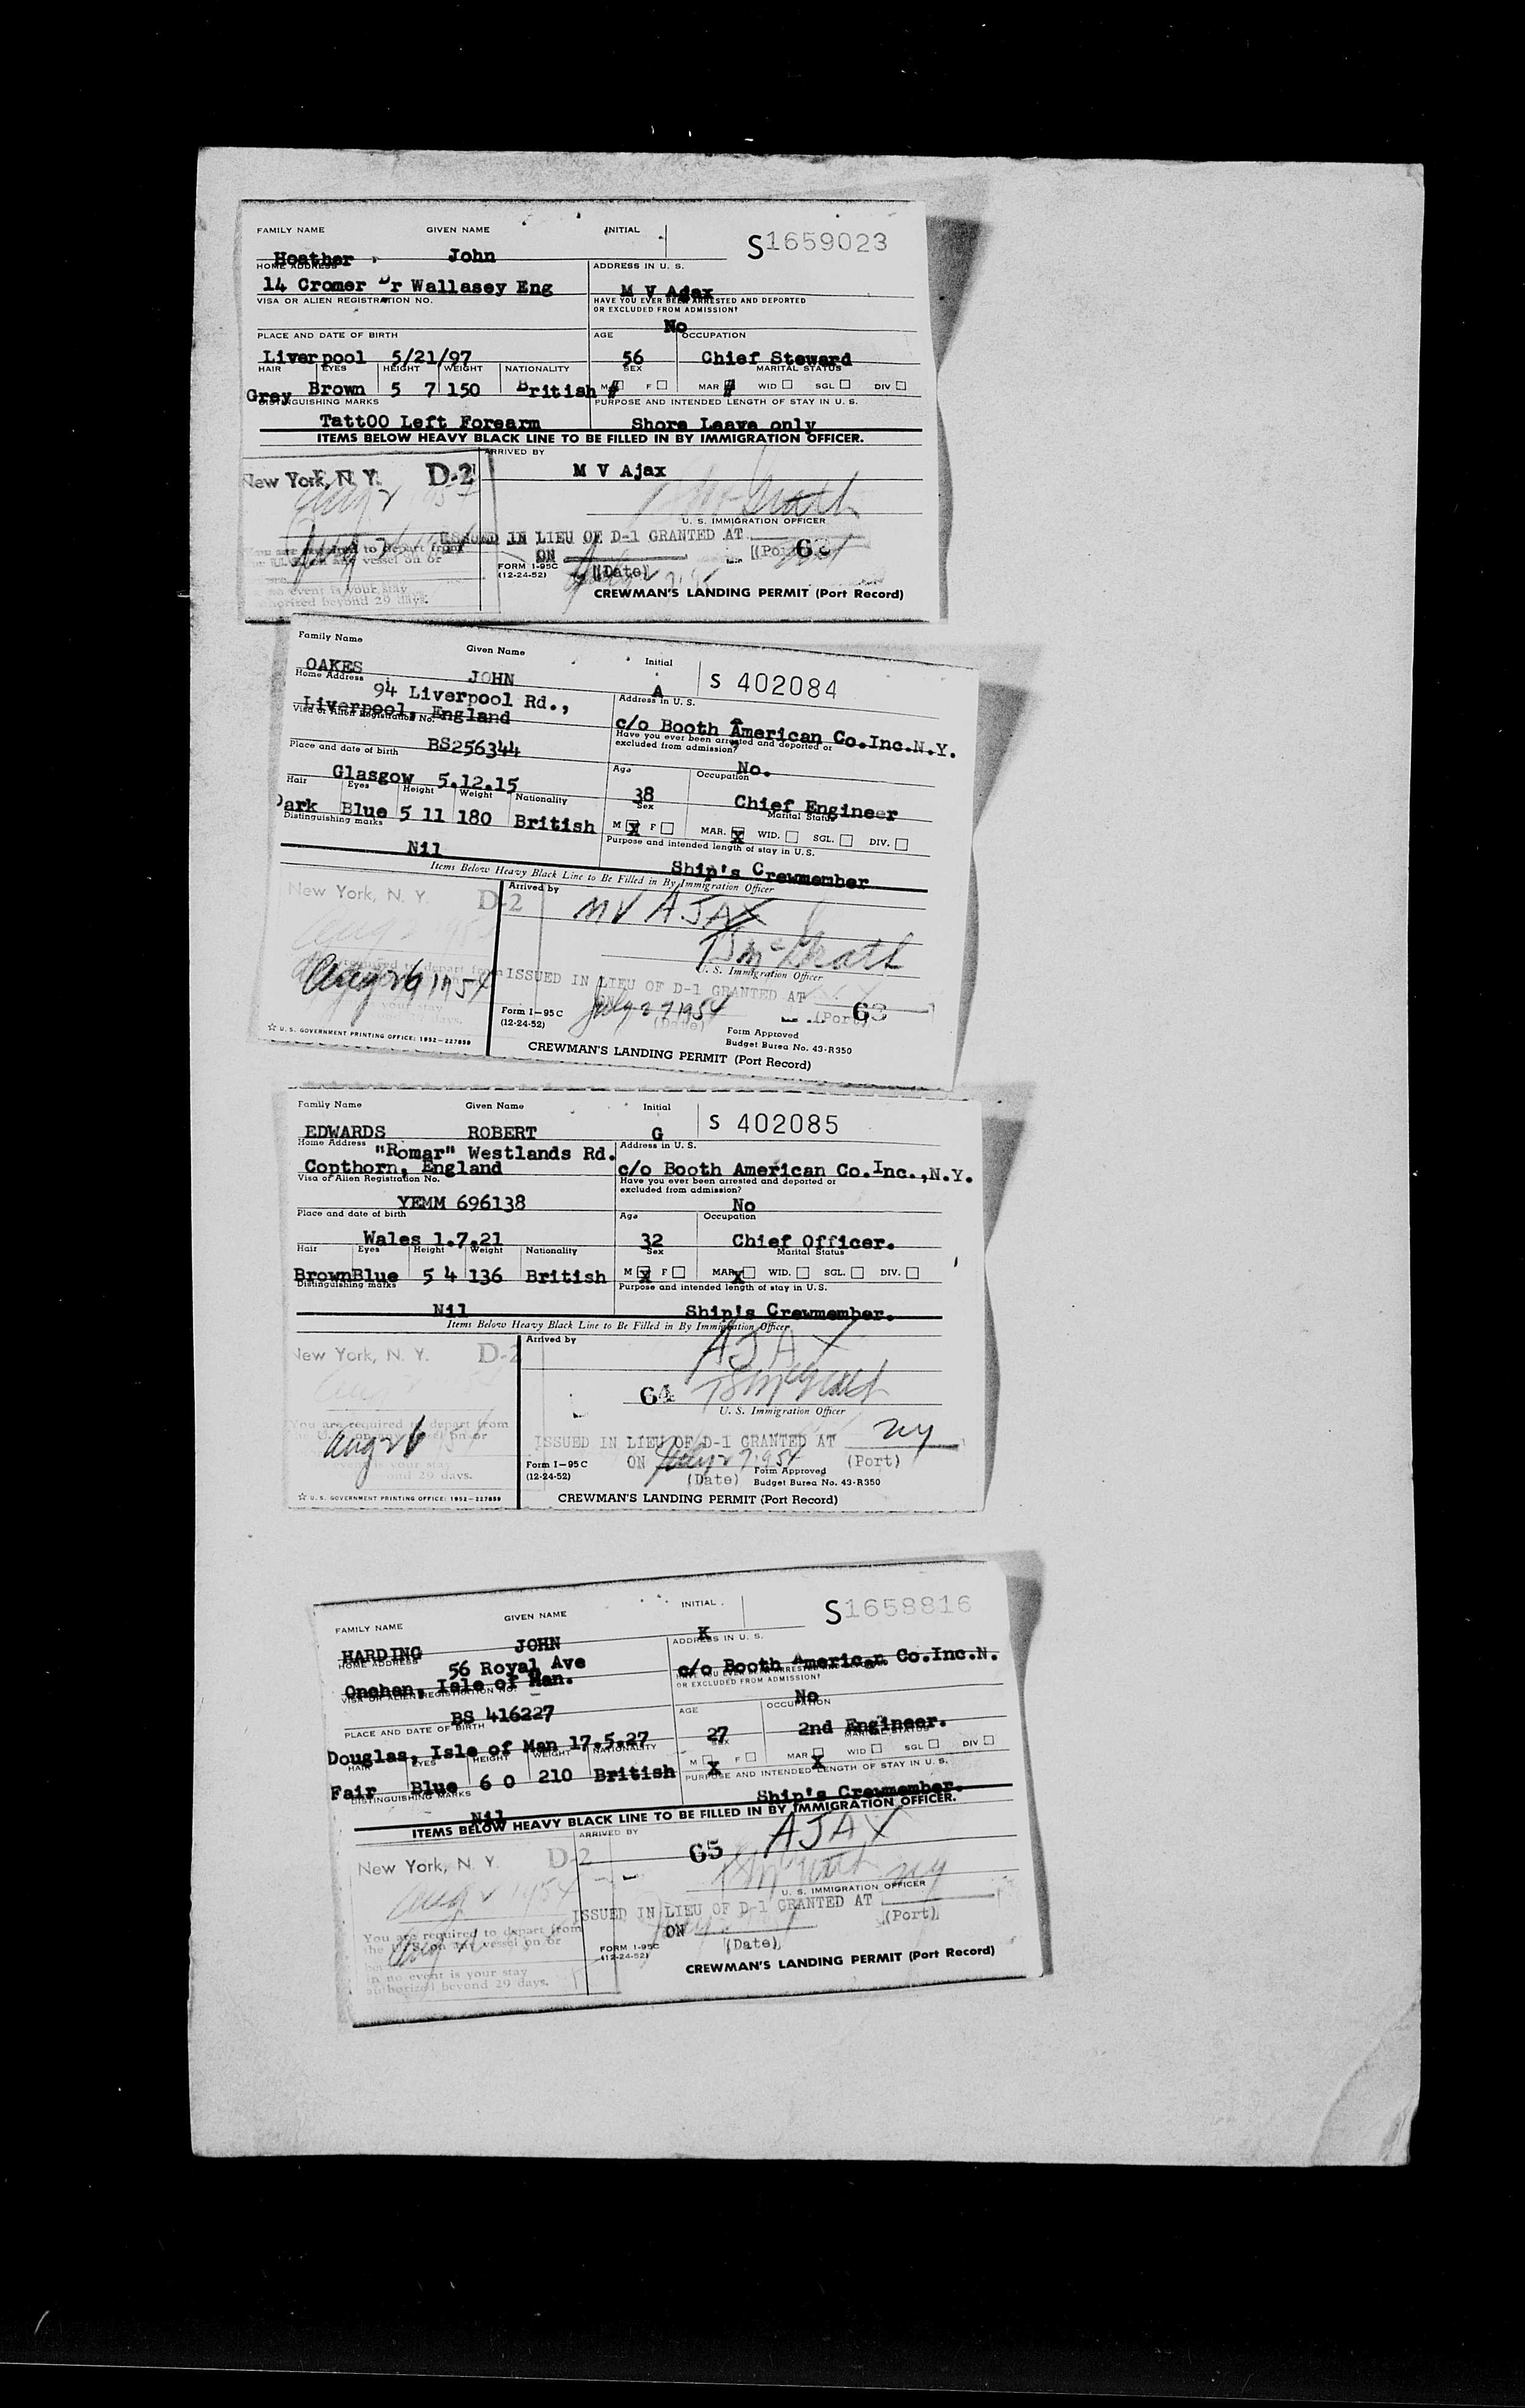 FAMILY NAME GIVEN NAME INITIAL
S1659023
Hoather John
HOME ADDRESS ADDRESS IN U. S.
14 Cromer Dr Wallasey Eng M V Ajax
VISA OR ALIEN REGISTRATION NO. HAVE YOU EVER BEEN ARRESTED AND DEPORTED
OR EXCLUDED FROM ADMISSION?
No
PLACE AND DATE OF BIRTH AGE OCCUPATION
Liverpool 5/21/97 56 Chief Steward
HAIR EYES HEIGHT WEIGHT NATIONALITY SEX MARITAL STATUS
Grey Brown 5 7 150 British M # F MAR # WID SGL DIV
DISTINGUISHING MARKS PURPOSE AND INTENDED LENGTH OF STAY IN U. S.
TattOO Left Forearm Shore Leave only
ITEMS BELOW HEAVY BLACK LINE TO BE FILLED IN BY IMMIGRATION OFFICER.
ARRIVED BY
New York, N. Y. D-2 M V Ajax
U. S. IMMIGRATION OFFICER
ISSUED IN LIEU OF D-1 GRANTED AT
to depart from
vessel on or
ON (Port) 62
FORM I-95C
(12-24-52) (Date)
event is your stay
beyond 29 days.
CREWMAN'S LANDING PERMIT (Port Record)
Family Name Given Name Initial
S 402084
OAKES JOHN A
Home Address Address in U. S.
94 Liverpool Rd.,
Liverpool, England c/o Booth American Co.Inc.N.Y.
Visa or Alien Registration No. Have you ever been arrested and deported or
excluded from admission?
BS256344 No.
Place and date of birth Age Occupation
Glasgow 5.12.15 38 Chief Engineer
Hair Eyes Height Weight Nationality Sex Marital Status
Dark Blue 5 11 180 British M X F MAR. X WID. SGL. DIV.
Distinguishing marks Purpose and intended length of stay in U.S.
Nil Ship's Crewmember
Items Below Heavy Black Line to Be Filled in By Immigration Officer
Arrived by
New York, N. Y. D-2 MV AJAX
T S McGrath
U. S. Immigration Officer
Aug 26 1954
ISSUED IN LIEU OF D-1 GRANTED AT
ON July 27 1954 63
(Date) (Port)
Form I-95C
(12-24-52)
Form Approved
Budget Burea No. 43-R350
☆ U. S. GOVERNMENT PRINTING OFFICE: 1952-227859
CREWMAN'S LANDING PERMIT (Port Record)
Family Name Given Name Initial
S 402085
EDWARDS ROBERT G
Home Address Address in U. S.
"Romar" Westlands Rd.
Copthorn, England c/o Booth American Co.Inc.,N.Y.
Visa of Alien Registration No. Have you ever been arrested and deported or
excluded from admission?
YEMM 696138 No
Place and date of birth Age Occupation
Wales 1.7.21 32 Chief Officer.
Hair Eyes Height Weight Nationality Sex Marital Status
Brown Blue 5 4 136 British M X F MAR X WID. SGL. DIV.
Distinguishing marks Purpose and intended length of stay in U.S.
Nil Ship's Crewmember.
Items Below Heavy Black Line to Be Filled in By Immigration Officer
Arrived by
New York, N. Y. D-2 AJAX
64 T S McGrath
U. S. Immigration Officer
You are required to depart from
Aug 26
ISSUED IN LIEU OF D-1 GRANTED AT NY
ON July 27 1954 (Port)
29 days.
Form I-95C
(12-24-52) (Date)
Form Approved
Budget Burea No. 43-R350
☆ U. S. GOVERNMENT PRINTING OFFICE: 1952-227859
CREWMAN'S LANDING PERMIT (Port Record)
FAMILY NAME GIVEN NAME INITIAL
S1658816
HARDING JOHN K
HOME ADDRESS ADDRESS IN U. S.
56 Royal Ave
Onchan, Isle of Man. c/o Booth American Co.Inc.N.
VISA OR ALIEN REGISTRATION NO. HAVE YOU EVER BEEN ARRESTED AND DEPORTED
OR EXCLUDED FROM ADMISSION?
BS 416227 No
PLACE AND DATE OF BIRTH AGE OCCUPATION
Douglas, Isle of Man 17.5.27 27 2nd Engineer.
HAIR EYES HEIGHT WEIGHT NATIONALITY SEX MARITAL STATUS
Fair Blue 6 0 210 British M X F MAR X WID SGL DIV
DISTINGUISHING MARKS PURPOSE AND INTENDED LENGTH OF STAY IN U. S.
Nil Ship's Crewmember.
ITEMS BELOW HEAVY BLACK LINE TO BE FILLED IN BY IMMIGRATION OFFICER.
ARRIVED BY
New York, N. Y. D-2 65 AJAX
NY
U. S. IMMIGRATION OFFICER
Aug 2 1954
ISSUED IN LIEU OF D-1 GRANTED AT
You are required to depart from
the U.S. on any vessel on or
ON (Port)
(Date)
FORM I-95C
(12-24-52)
in no event is your stay
authorized beyond 29 days.
CREWMAN'S LANDING PERMIT (Port Record)